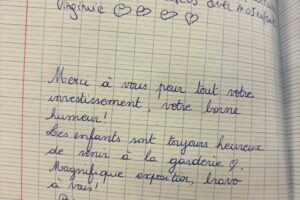 avec
Virginie ♡ ♡ ♡ ♡
Merci à vous pour tout votre
investissement, votre bonne
humeur!
Les enfants sont toujours heureux
de venir à la garderie ♡.
Magnifique exposition, bravo
à vous!